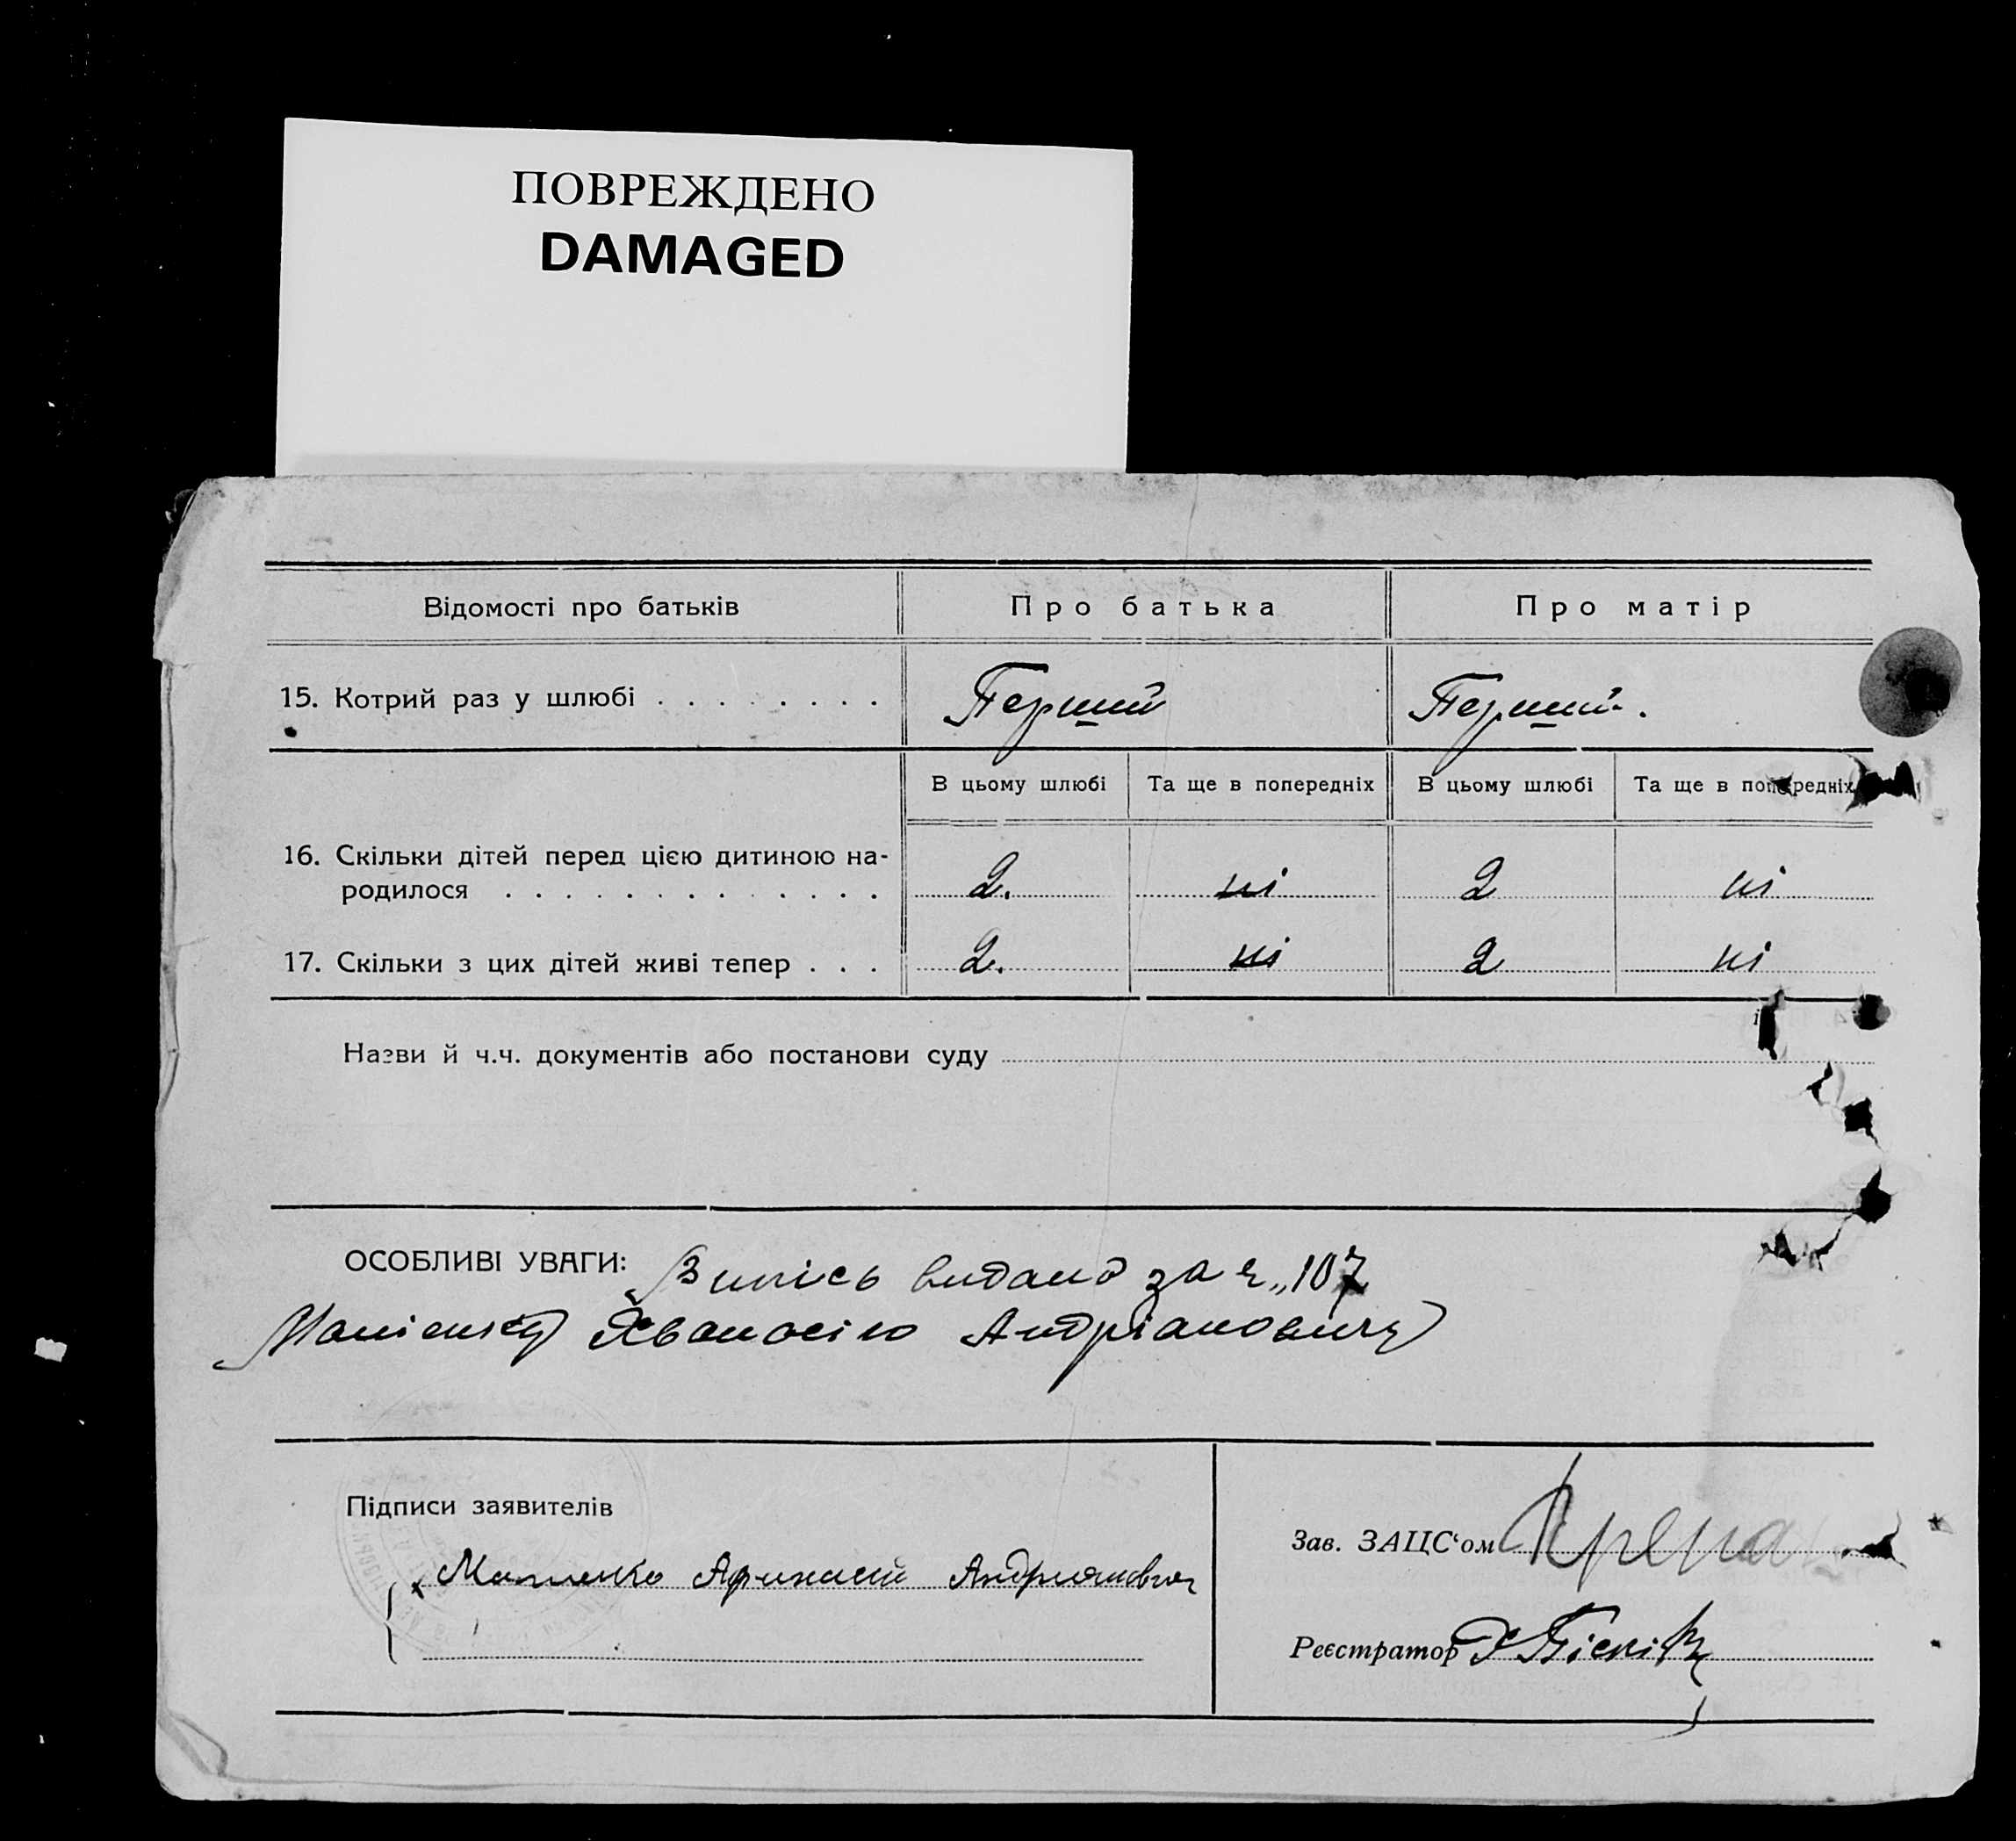 ПОВРЕЖДЕНО
DAMAGED
Відомості про батьків
Про батька
Про матір
15. Котрий раз у шлюбі . . . . . . . .
Перший
Перший.
В цьому шлюбі
Та ще в попередніх
В цьому шлюбі
Та ще в попередніх
16. Скільки дітей перед цією дитиною на-
родилося . . . . . . . . . . . . .
2.
ні
2
ні
17. Скільки з цих дітей живі тепер . . .
2.
ні
2
ні
Назви й ч.ч. документів або постанови суду
ОСОБЛИВІ УВАГИ: Випісь видано за ч. 107
Андріановичу
Підписи заявителів
Зав. ЗАЦС‘ом
Реєстратор